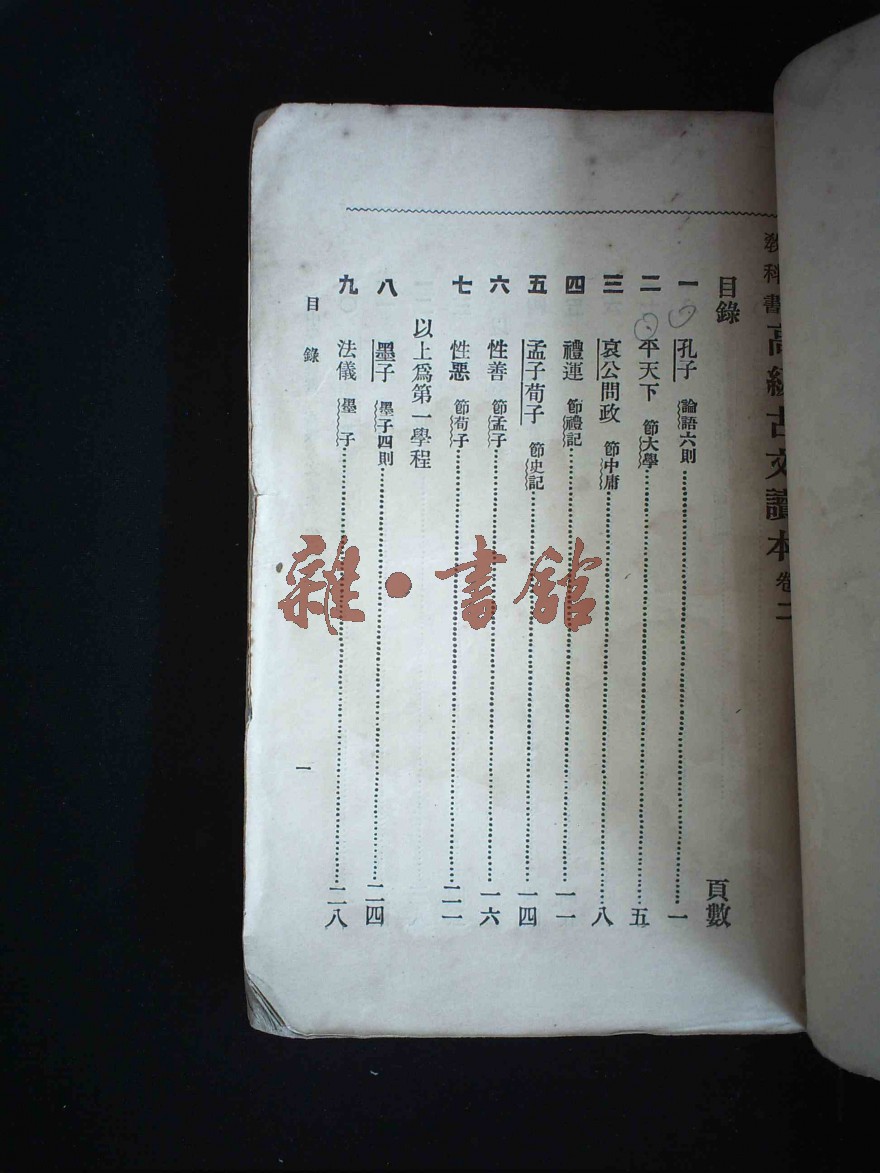 教科書高級古文讀本卷二
目錄 頁數
一 孔子 論語六則 一
二 平天下 節大學 五
三 哀公問政 節中庸 八
四 禮運 節禮記 一一
五 孟子荀子 節史記 一四
六 性善 節孟子 一六
七 性惡 節荀子 二一
以上爲第一學程
八 墨子 墨子四則 二四
九 法儀 墨子 二八
目錄 一
雜·書館